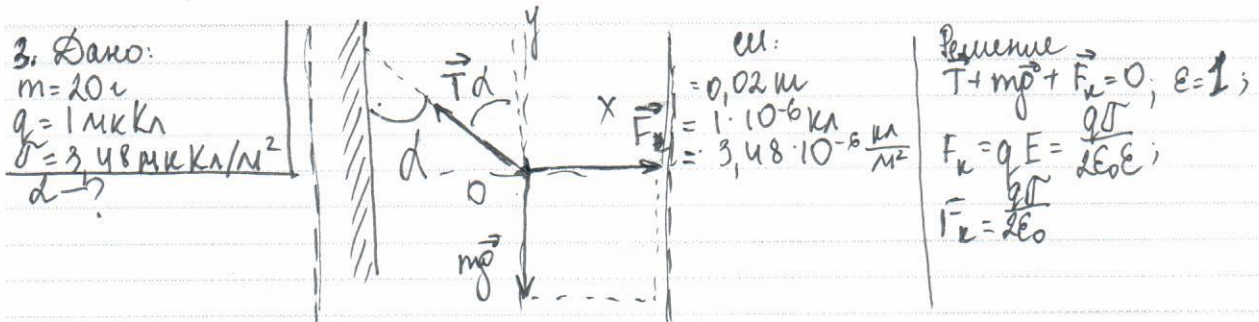 3. Дано:
m = 20 г
q = 1 мкКл
σ = 3,48 мкКл/м²
α - ?
y
T⃗ α
x
F⃗к
α
0
mg⃗
си:
= 0,02 кг
= 1·10⁻⁶ кл
= 3,48·10⁻⁶ кл/м²
Решение
T⃗ + mg⃗ + F⃗к = 0; ε = 1;
Fк = qE = qσ/2ε₀ε;
Fк = qσ/2ε₀